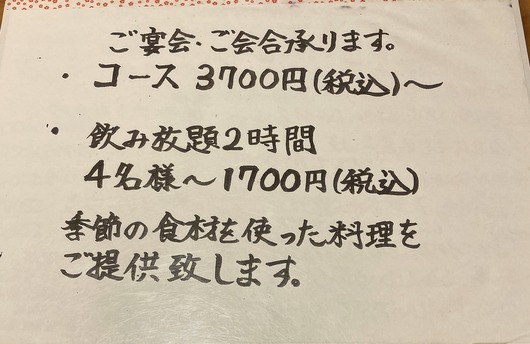 ご宴会・ご会合承ります。
・ コース 3700円(税込)～
・ 飲み放題2時間
4名様～1700円(税込)
季節の食材を使った料理を
ご提供致します。